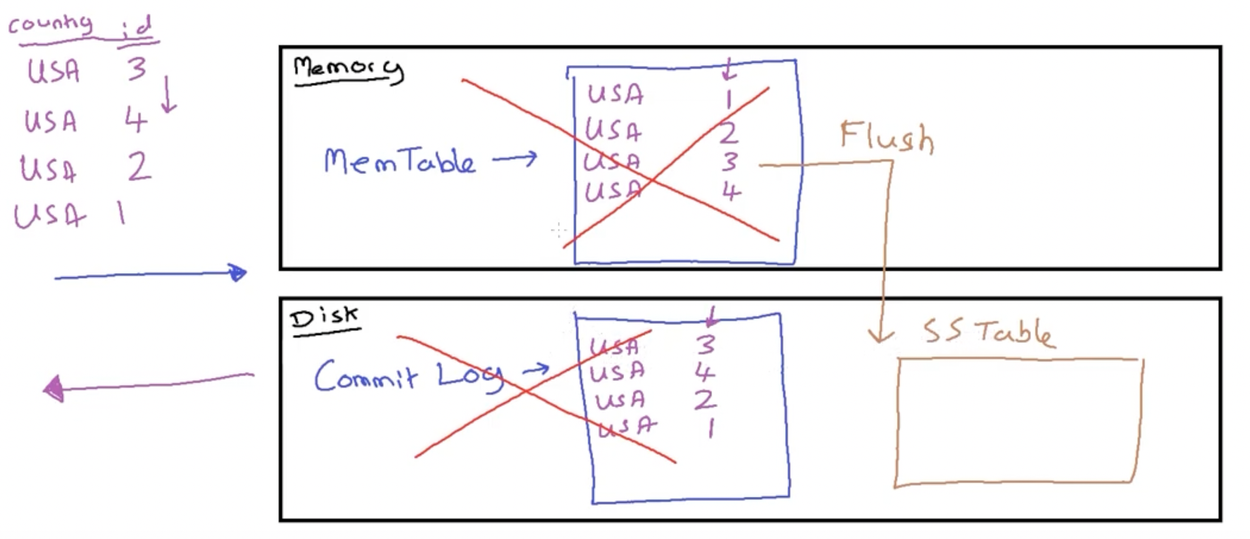 country id
USA 3
USA 4
USA 2
USA 1
Memory
MemTable →
USA 1
USA 2
USA 3
USA 4
Flush
Disk
Commit Log →
USA 3
USA 4
USA 2
USA 1
SS Table